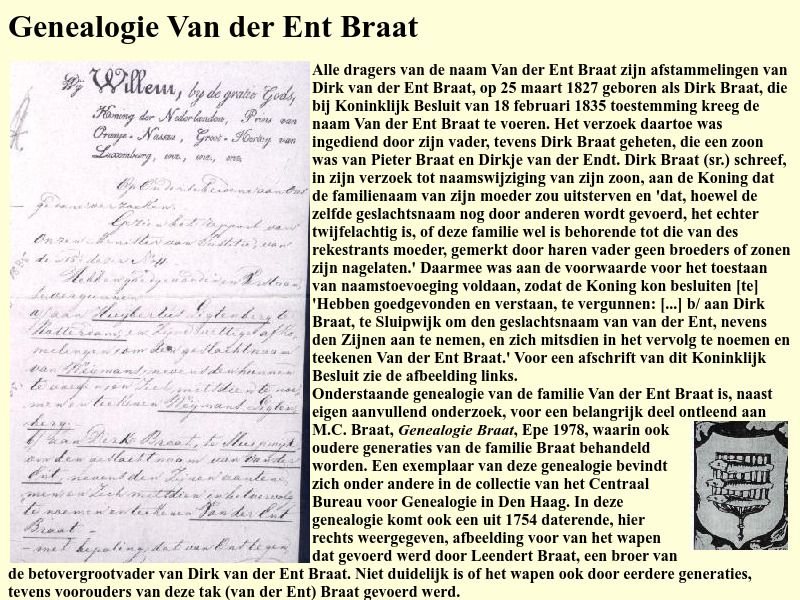 Genealogie Van der Ent Braat
Wij Willem, by de gratie Gods,
Koning der Nederlanden, Prins van
Oranje-Nassau, Groot-Hertog van
Luxemburg, enz., enz., enz.
Alle dragers van de naam Van der Ent Braat zijn afstammelingen van
Dirk van der Ent Braat, op 25 maart 1827 geboren als Dirk Braat, die
bij Koninklijk Besluit van 18 februari 1835 toestemming kreeg de
naam Van der Ent Braat te voeren. Het verzoek daartoe was
ingediend door zijn vader, tevens Dirk Braat geheten, die een zoon
was van Pieter Braat en Dirkje van der Endt. Dirk Braat (sr.) schreef,
in zijn verzoek tot naamswijziging van zijn zoon, aan de Koning dat
de familienaam van zijn moeder zou uitsterven en 'dat, hoewel de
zelfde geslachtsnaam nog door anderen wordt gevoerd, het echter
twijfelachtig is, of deze familie wel is behorende tot die van des
rekestrants moeder, gemerkt door haren vader geen broeders of zonen
zijn nagelaten.' Daarmee was aan de voorwaarde voor het toestaan
van naamstoevoeging voldaan, zodat de Koning kon besluiten [te]
'Hebben goedgevonden en verstaan, te vergunnen: [...] b/ aan Dirk
Braat, te Sluipwijk om den geslachtsnaam van van der Ent, nevens
den Zijnen aan te nemen, en zich mitsdien in het vervolg te noemen en
teekenen Van der Ent Braat.' Voor een afschrift van dit Koninklijk
Besluit zie de afbeelding links.
Onderstaande genealogie van de familie Van der Ent Braat is, naast
eigen aanvullend onderzoek, voor een belangrijk deel ontleend aan
M.C. Braat, Genealogie Braat, Epe 1978, waarin ook
oudere generaties van de familie Braat behandeld
worden. Een exemplaar van deze genealogie bevindt
zich onder andere in de collectie van het Centraal
Bureau voor Genealogie in Den Haag. In deze
genealogie komt ook een uit 1754 daterende, hier
rechts weergegeven, afbeelding voor van het wapen
dat gevoerd werd door Leendert Braat, een broer van
de betovergrootvader van Dirk van der Ent Braat. Niet duidelijk is of het wapen ook door eerdere generaties,
tevens voorouders van deze tak (van der Ent) Braat gevoerd werd.